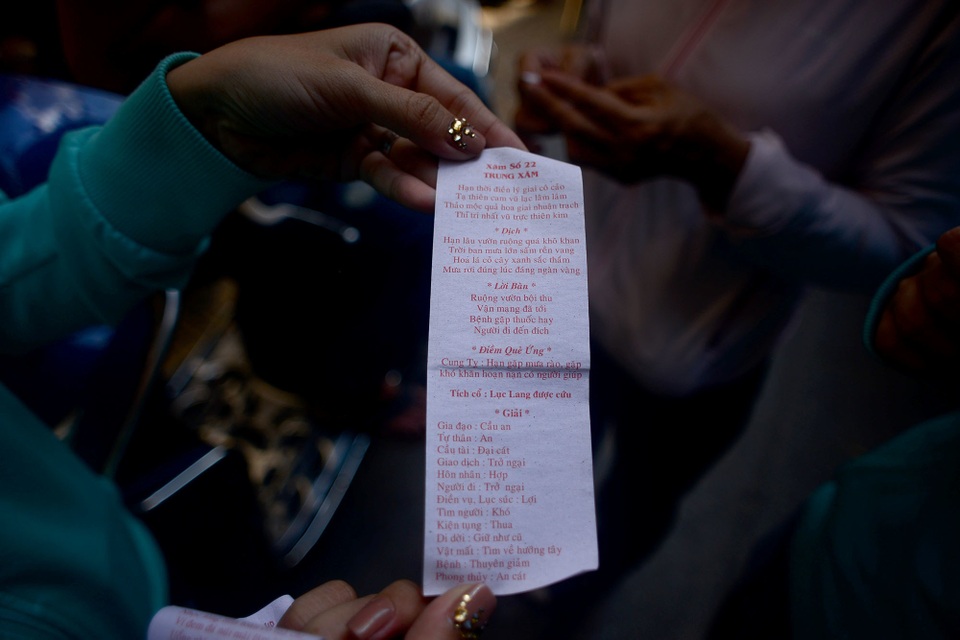 Xăm Số 22
TRUNG XĂM
Hạn thời điện lý giai cô cảo
Tạ thiên cam vũ lạc lâm lâm
Thảo mộc quả hoa giai nhuận trạch
Thỉ tri nhất vũ trực thiên kim
* Dịch *
Hạn lâu vườn ruộng quá khô khan
Trời ban mưa lớn sấm rền vang
Hoa lá cỏ cây xanh sắc thắm
Mưa rơi đúng lúc đáng ngàn vàng
* Lời Bàn *
Ruộng vườn bội thu
Vận mạng đã tới
Bệnh gặp thuốc hay
Người đi đến đích
* Điềm Quẻ Ứng *
Cung Tý : Hạn gặp mưa rào, gặp
khó khăn hoạn nạn có người giúp
Tích cổ : Lục Lang được cứu
* Giải *
Gia đạo : Cầu an
Tự thân : An
Cầu tài : Đại cát
Giao dịch : Trở ngại
Hôn nhân : Hợp
Người đi : Trở ngại
Điền vụ, Lục súc : Lợi
Tìm người : Khó
Kiện tụng : Thua
Di dời : Giữ như cũ
Vật mất : Tìm về hướng tây
Bệnh : Thuyên giảm
Phong thủy : An cát